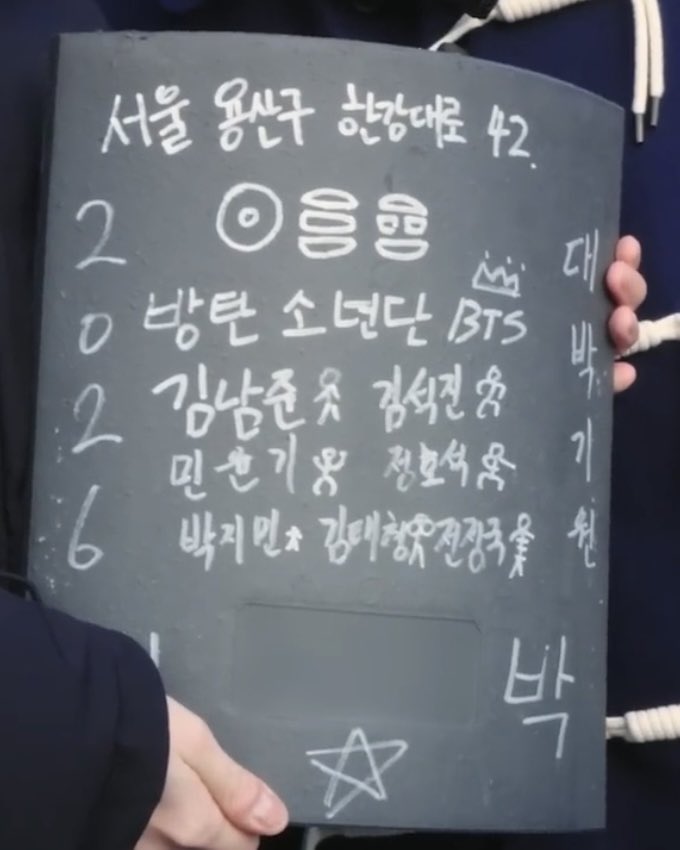 서울 용산구 한강대로 42.
2026
방탄소년단 BTS
김남준 김석진
민윤기 정호석
박지민 김태형 전정국
대박기원
박